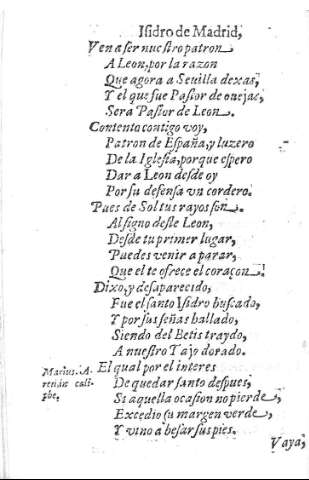 Isidro de Madrid,
Ven a ser nuestro patron
A Leon, por la razon
Que agora a Seuilla dexas,
Y el que fue Pastor de ouejas,
Sera Pastor de Leon.
Contento contigo voy,
Patron de España, y luzero
De la Iglesia, porque espero
Dar a Leon desde oy
Por su defensa vn cordero.
Pues de Sol tus rayos son,
Al signo deste Leon,
Desde tu primer lugar,
Puedes venir a parar,
Que el te ofrece el coraçon.
Dixo, y desaparecido,
Fue el santo Isidro buscado,
Y por sus señas hallado,
Siendo del Betis traydo,
A nuestro Tajo dorado.
El qual por el interes
De quedar santo despues,
Si aquella ocasion no pierde,
Excedio su margen verde,
Y vino a besar sus pies.
Marius. A-
retius cali-
phe,
Vaya,